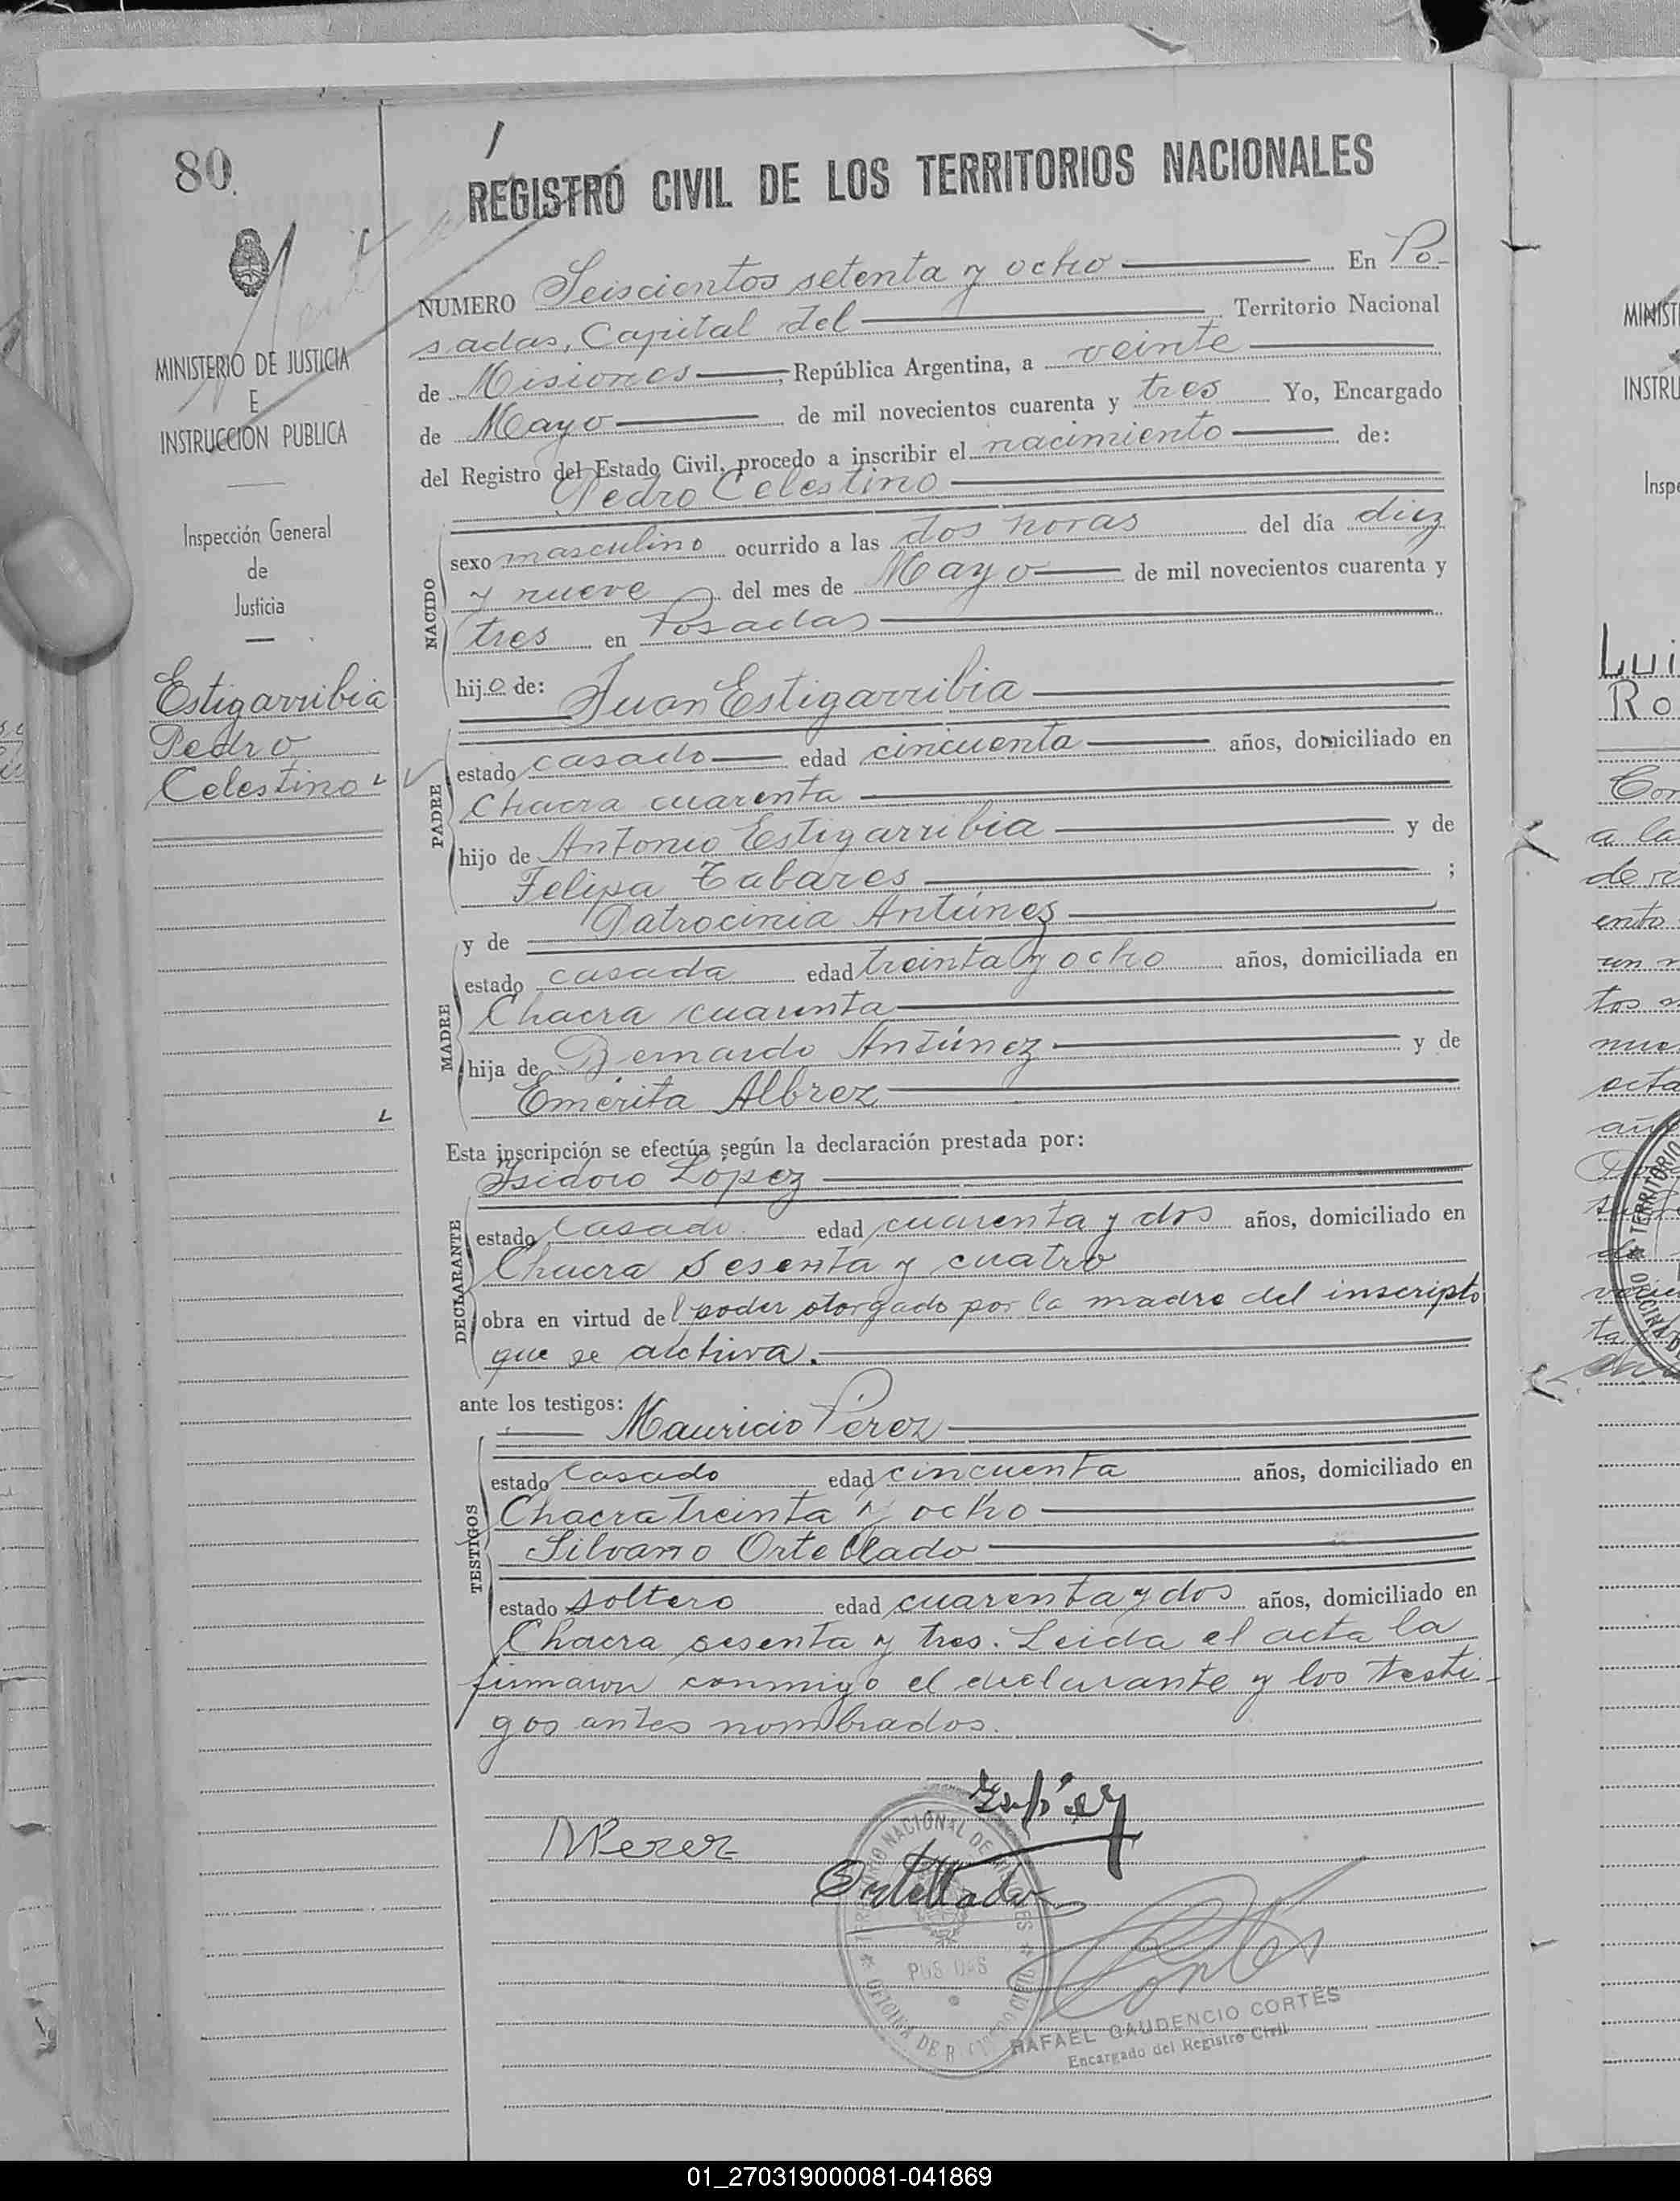 80.
REGISTRO CIVIL DE LOS TERRITORIOS NACIONALES
NUMERO Seiscientos setenta y ocho En Po-
sadas, Capital del Territorio Nacional
de Misiones, República Argentina, a veinte
de Mayo de mil novecientos cuarenta y tres Yo, Encargado
del Registro del Estado Civil, procedo a inscribir el nacimiento de:
Pedro Celestino
sexo masculino ocurrido a las dos horas del día diez
y nueve del mes de Mayo de mil novecientos cuarenta y
tres en Posadas
hijo de: Juan Estigarribia
estado casado edad cincuenta años, domiciliado en
Chacra cuarenta
hijo de Antonio Estigarribia y de
Felipa Tabares ;
y de Patrocinia Antúnez
estado casada edad treinta y ocho años, domiciliada en
Chacra cuarenta
hija de Bernardo Antúnez y de
Emerita Albrez
Esta inscripción se efectúa según la declaración prestada por:
Isidoro López
estado casado edad cuarenta y dos años, domiciliado en
Chacra sesenta y cuatro
obra en virtud del poder otorgado por la madre del inscripto
que se archiva.
ante los testigos:
Mauricio Pérez
estado casado edad cincuenta años, domiciliado en
Chacra treinta y ocho
Silvano Ortellado
estado soltero edad cuarenta y dos años, domiciliado en
Chacra sesenta y tres. Leida el acta la
firmaron conmigo el declarante y los testi-
gos antes nombrados.
NACIDO
PADRE
MADRE
DECLARANTE
TESTIGOS
MINISTERIO DE JUSTICIA
E
INSTRUCCION PUBLICA
Inspección General
de
Justicia
Estigarribia
Pedro
Celestino
López
MPerez
Ortellado
Cortés
RAFAEL GAUDENCIO CORTÉS
Encargado del Registro Civil
MINIST
INSTRU
Inspe
Lui
Ro
01_270319000081-041869